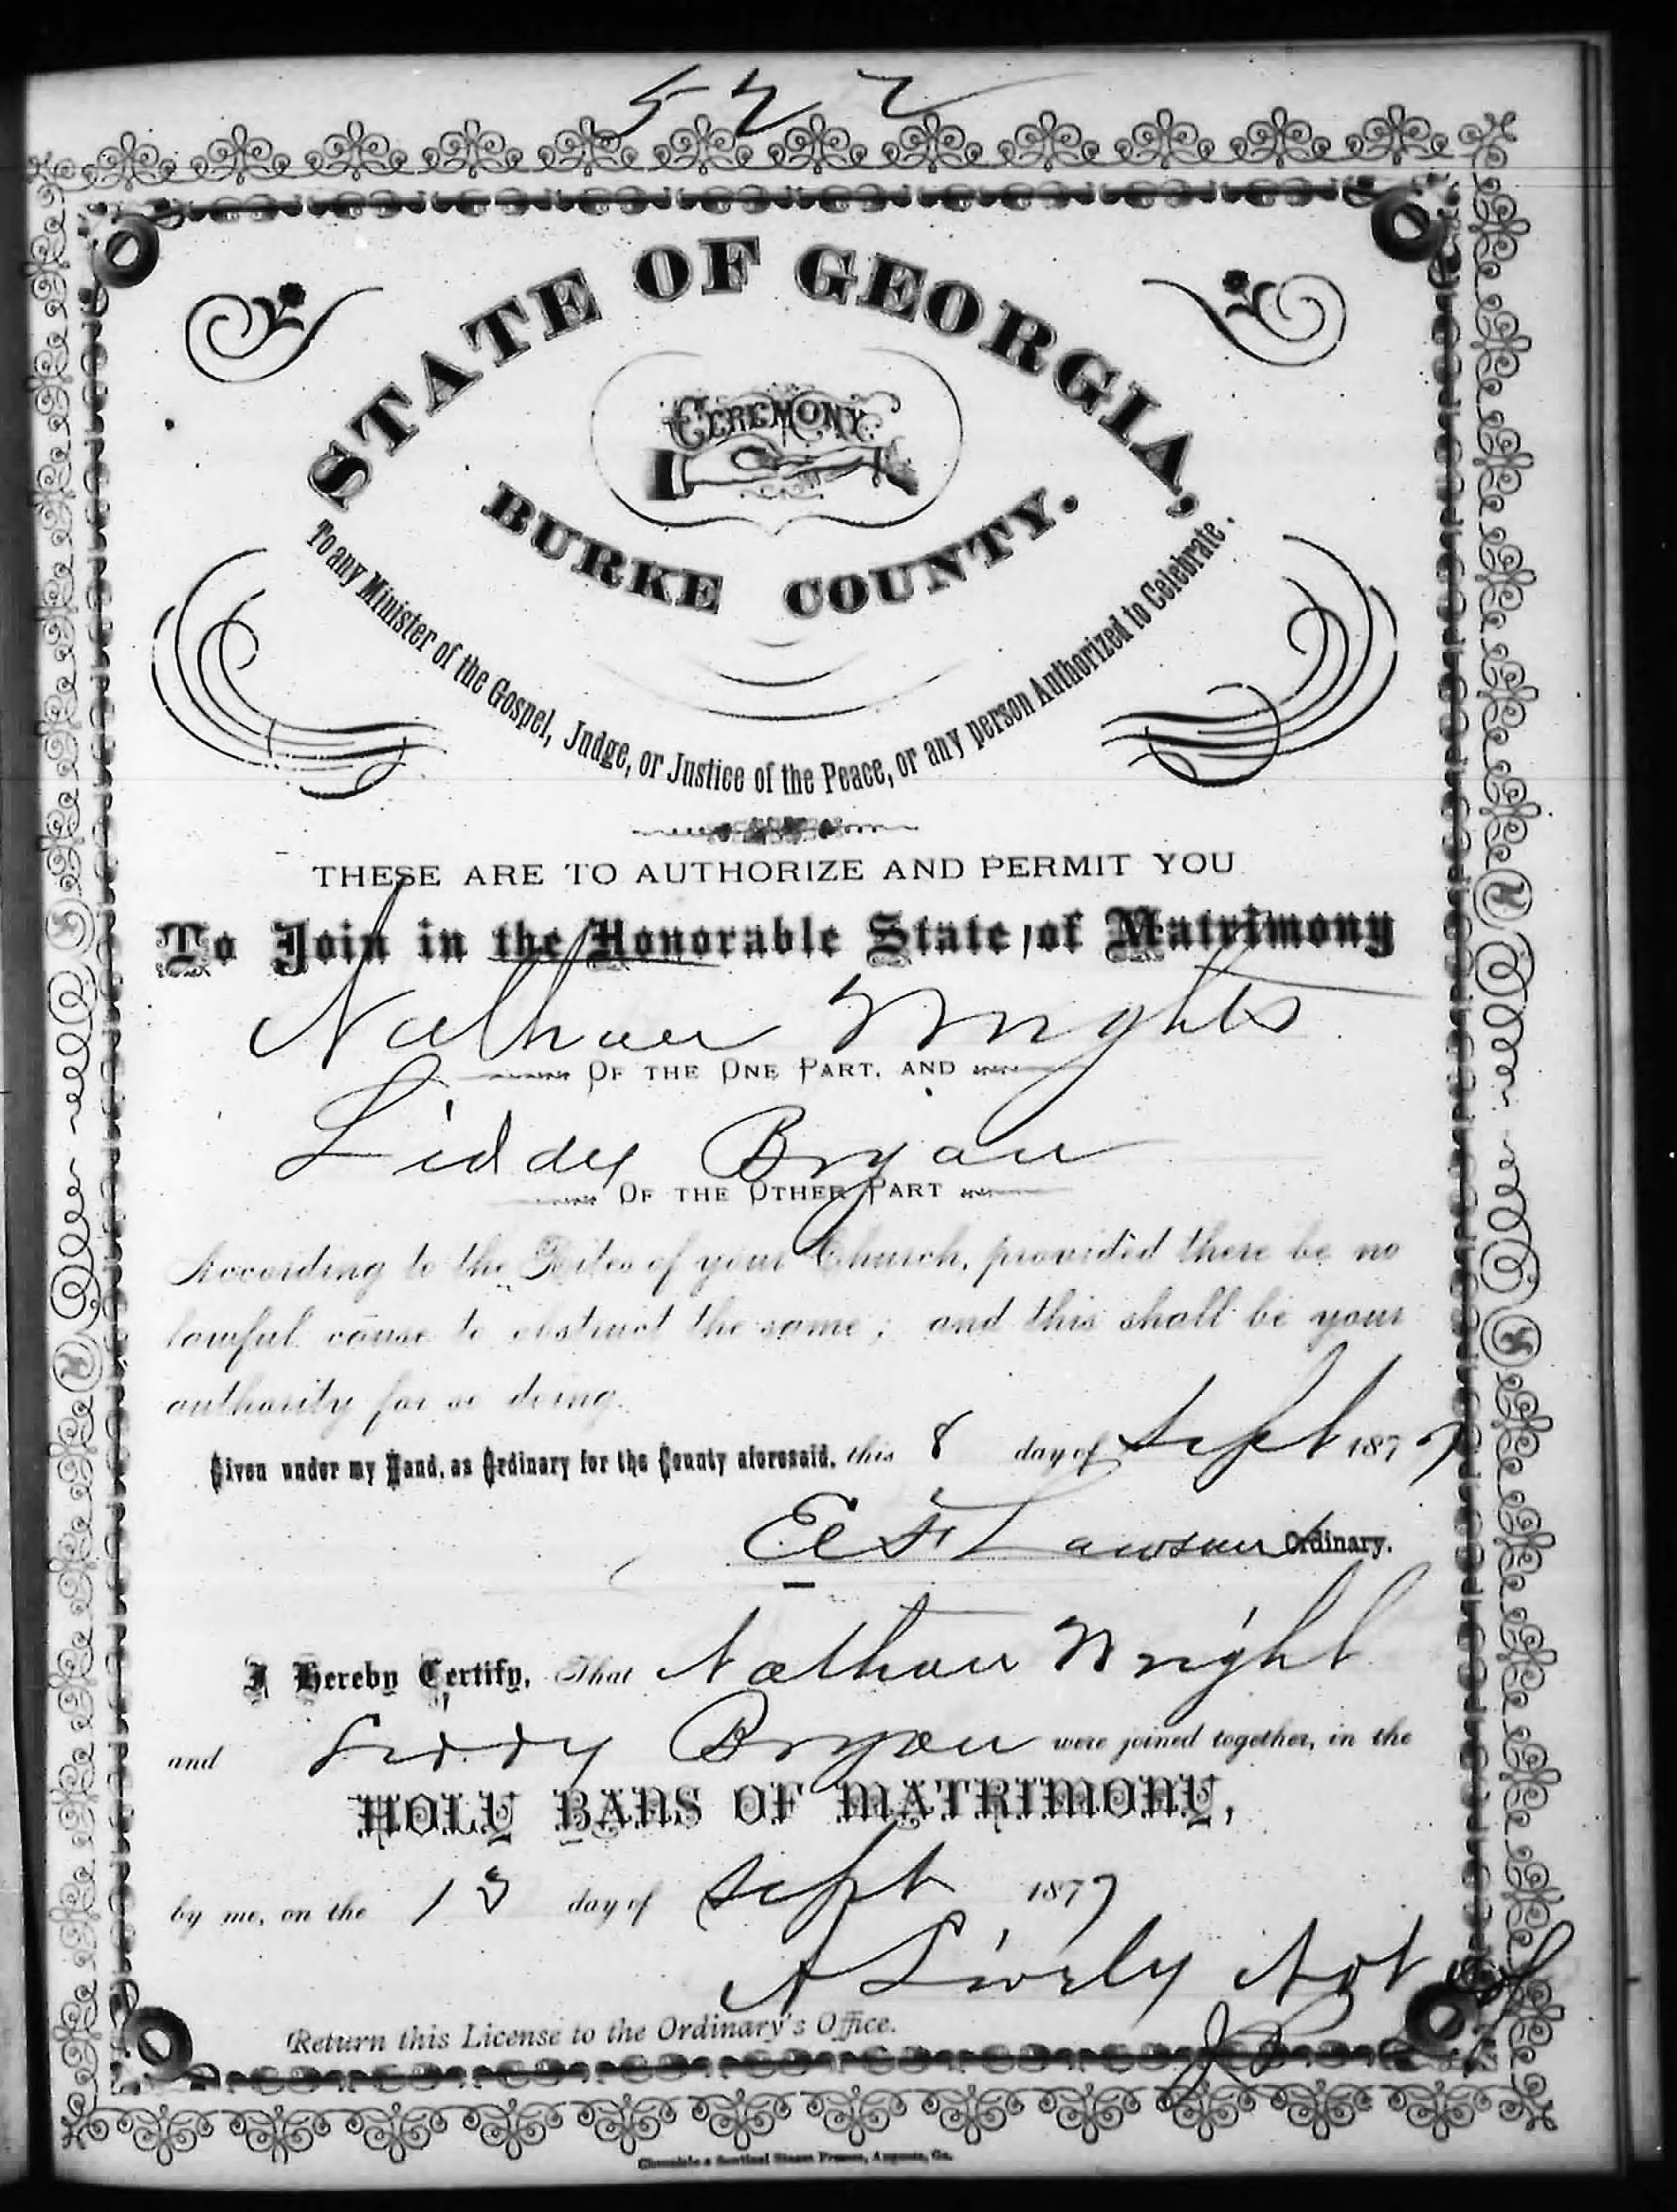 522
STATE OF GEORGIA,
CEREMONY.
BURKE COUNTY.
To any Minister of the Gospel, Judge, or Justice of the Peace, or any person Authorized to Celebrate.
THESE ARE TO AUTHORIZE AND PERMIT YOU
To Join in the Honorable State of Matrimony
Nathan Wrights
OF THE ONE PART, AND
Liddy Bryan
OF THE OTHER PART
According to the Rites of your Church, provided there be no
lawful cause to obstruct the same; and this shall be your
authority for so doing.
Given under my Hand, as Ordinary for the County aforesaid, this 8 day of Sept 1877
E F Lawson Ordinary.
I Hereby Certify, That Nathan Wright
and Liddy Bryan were joined together, in the
HOLY BANS OF MATRIMONY,
by me, on the 13 day of Sept 1877
A Lively Not
J P
Return this License to the Ordinary's Office.
Chronicle & Sentinel Steam Presses, Augusta, Ga.